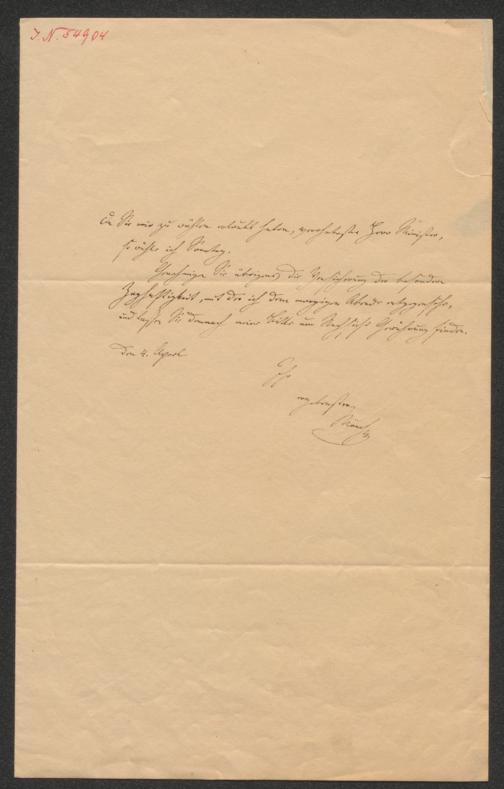 I.N. 54904
Da Sie mir zu wählen erlaubt haben, verehrtester Herr Minister,
so wähle ich Sonntag.
Genehmigen Sie übrigens die Versicherung der besondern
Zaghaftigkeit, mit der ich dem morgigen Abende entgegensehe,
und lassen Sie demnach meine Bitte um Nachsicht Gewährung finden.
Den 4. April
Ihr
ergebenster
Münch